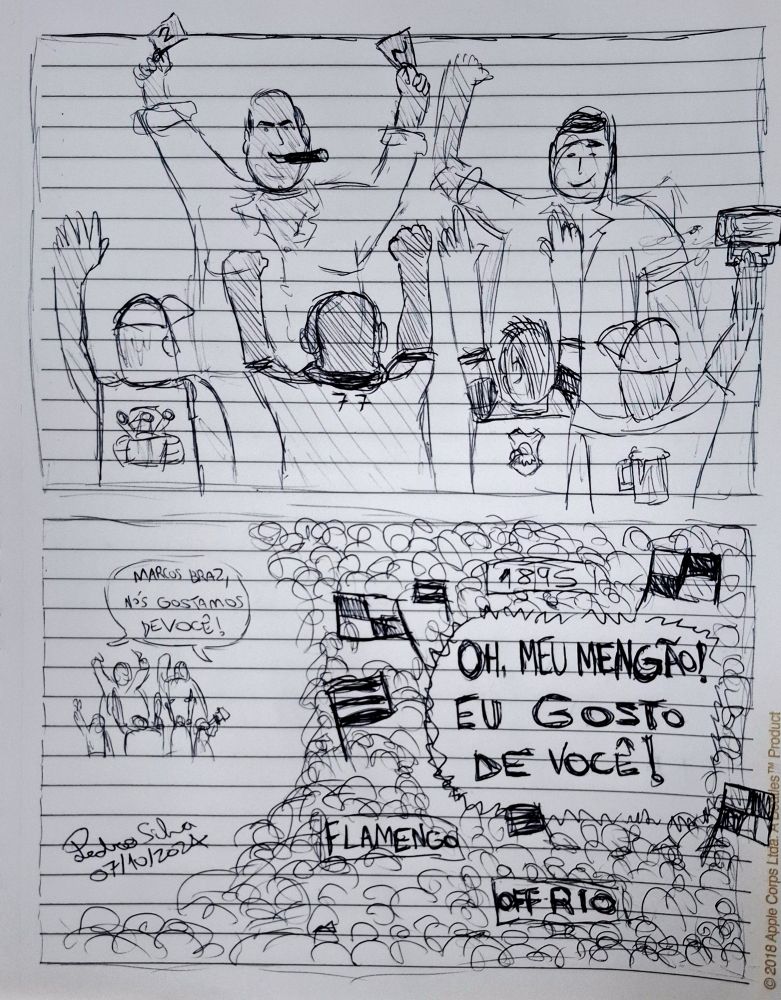 2
77
MARCOS BRAZ,
NÓS GOSTAMOS
DE VOCÊ!
1895
OH, MEU MENGÃO!
EU GOSTO
DE VOCÊ!
FLAMENGO
OFF-RIO
Pedro Silva
07/10/2024
© 2018 Apple Corps Ltda. Beatles™ Product